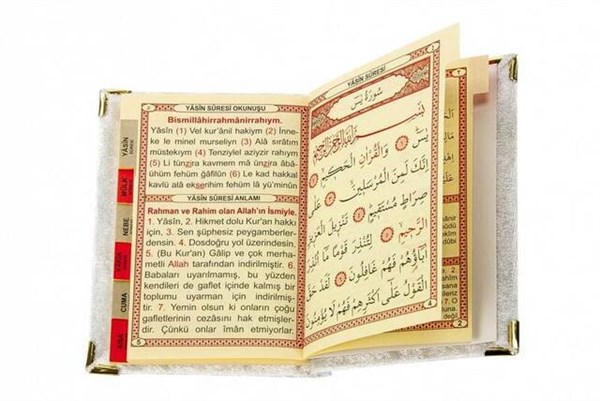 YÂSİN SÛRESİ OKUNUŞU
Bismillâhirrahmânirrahıym.
Yâsîn (1) Vel kur'ânil hakiym (2) İnne-
ke le minel murseliyn (3) Alâ sırâtim
müstekıym (4) Tenziylel aziyzir rahıym
(5) Li tünzira kavmem mâ ünzira âbâ-
ühüm fehüm ğâfilûn (6) Le kad hakkal
kavlü alâ ekserihim fehüm lâ yü'minûn
YÂSİN SÛRESİ ANLAMI
Rahman ve Rahim olan Allah'ın İsmiyle.
1. Yâsîn, 2. Hikmet dolu Kur'an hakkı
için, 3. Sen şüphesiz peygamberler-
densin. 4. Dosdoğru yol üzerindesin.
5. (Bu Kur'an) Gâlip ve çok merha-
metli Allah tarafından indirilmiştir. 6.
Babaları uyarılmamış, bu yüzden
kendileri de gaflet içinde kalmış bir
toplumu uyarman için indirilmiş-
tir. 7. Yemin olsun ki onların çoğu
gafletlerinin cezasını hak etmişler-
dir. Çünkü onlar îman etmiyorlar.
5
YÂSİN
MÜLK
NEBE
CUMA
YÂSİN SÛRESİ
سُورَةُ يٰسٓ
بِسْمِ اللّٰهِ الرَّحْمٰنِ الرَّحِيمِ
يٰسٓ ﴿١﴾ وَالْقُرْاٰنِ الْحَكِيمِ ﴿٢﴾
اِنَّكَ لَمِنَ الْمُرْسَلِينَ ﴿٣﴾ عَلٰى
صِرَاطٍ مُسْتَقِيمٍ ﴿٤﴾ تَنْزِيلَ الْعَزِيزِ
الرَّحِيمِ ﴿٥﴾ لِتُنْذِرَ قَوْمًا مَٓا اُنْذِرَ
اٰبَٓاؤُهُمْ فَهُمْ غَافِلُونَ ﴿٦﴾ لَقَدْ حَقَّ
الْقَوْلُ عَلٰٓى اَكْثَرِهِمْ فَهُمْ لَا يُؤْمِنُونَ
4
2